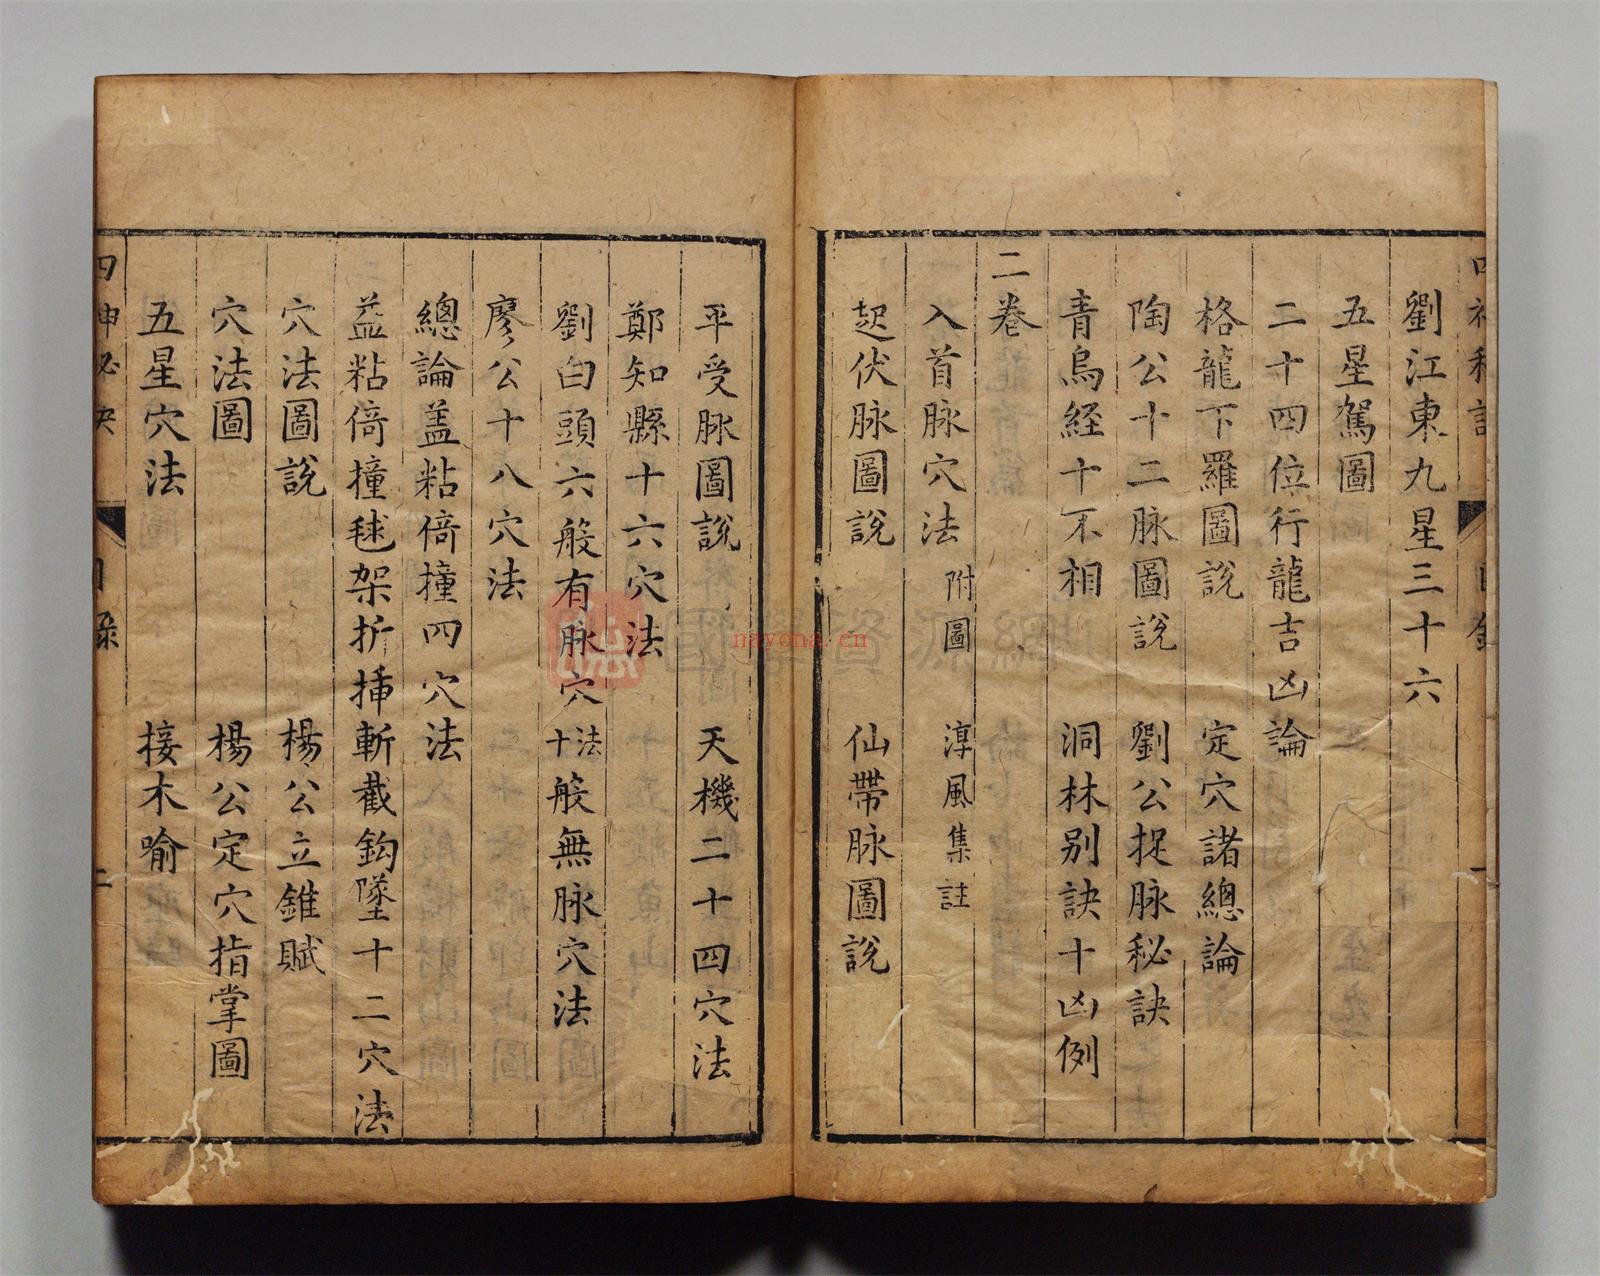 劉江東九星三十六
五星駕圖
二十四位行龍吉凶論
格龍下羅圖說 定穴諸總論
陶公十二脉圖說 劉公捉脉秘訣
青烏経十不相 洞林别訣十凶例
二卷
入首脉穴法 附圖 淳風集註
起伏脉圖說 仙帶脉圖說
平受脉圖說 天機二十四穴法
鄭知縣十六穴法
劉白頭六般有脉穴法十般無脉穴法
廖公十八穴法
總論盖粘倚撞四穴法
益粘倚撞毬架折揷斬截鈎墜十二穴法
穴法圖說 楊公立錐賦
穴法圖 楊公定穴指掌圖
五星穴法 接木喻
目錄 二
國學資源網
nayona.cn